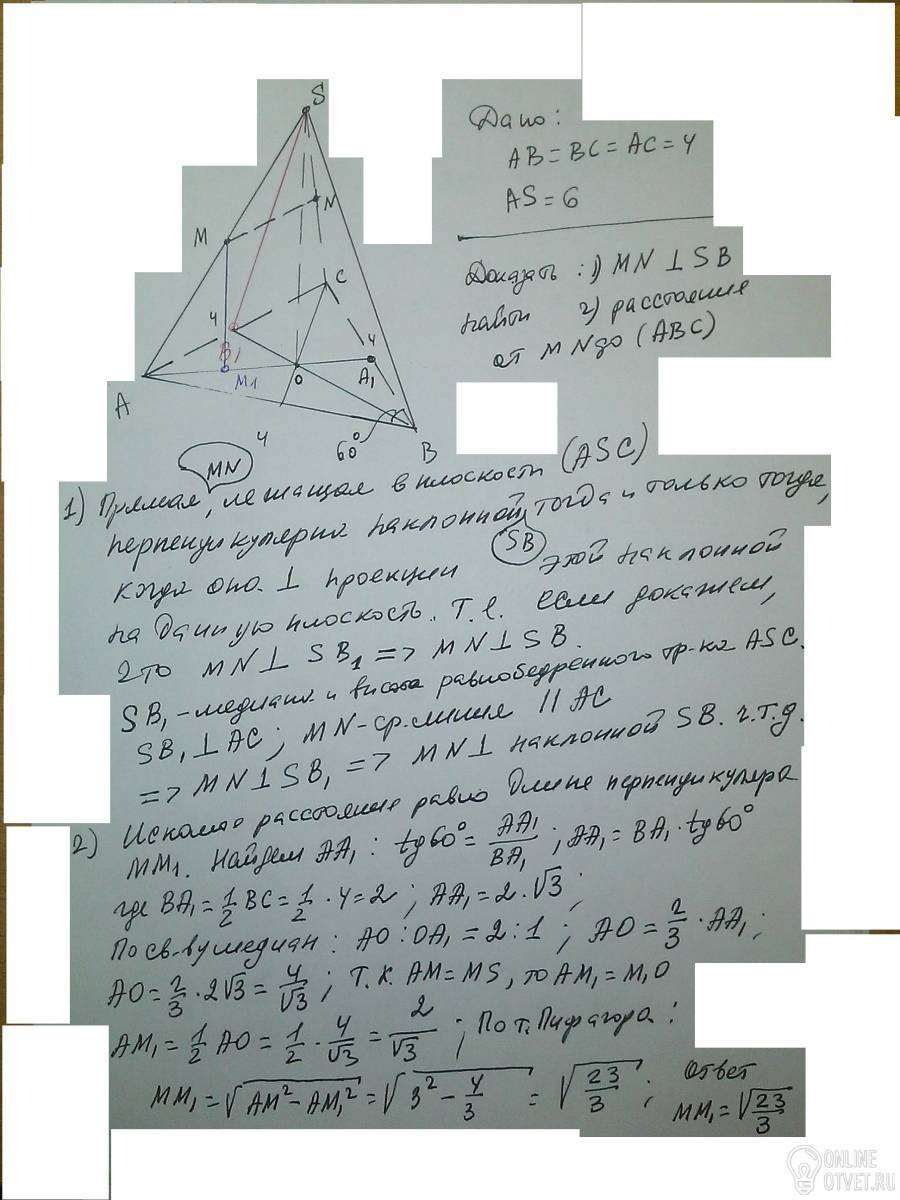 S
M
N
C
4
B₁
4
A
M1
O
A₁
B
4
60°
Дано:
AB = BC = AC = 4
AS = 6
Доказать: 1) MN ⊥ SB
найти 2) расстояние
от MN до (ABC)
MN
1) Прямая, лежащая в плоскости (ASC)
перпендикулярна наклонной, тогда и только тогда,
SB
когда она ⊥ проекции этой наклонной
на данную плоскость. Т.е. если докажем,
что MN ⊥ SB₁ => MN ⊥ SB.
SB₁ - медиана и высота равнобедренного тр-ка ASC.
SB₁ ⊥ AC; MN - ср. линия || AC
=> MN ⊥ SB₁ => MN ⊥ наклонной SB. ч.т.д.
2) Искомое расстояние равно длине перпендикуляра
MM₁. Найдем AA₁: tg60° = AA₁/BA₁; AA₁ = BA₁ · tg60°
где BA₁ = 1/2 BC = 1/2 · 4 = 2; AA₁ = 2·√3;
По св-ву медиан: AO : OA₁ = 2 : 1; AO = 2/3 · AA₁;
AO = 2/3 · 2√3 = 4/√3; Т.к. AM = MS, то AM₁ = M₁O
AM₁ = 1/2 AO = 1/2 · 4/√3 = 2/√3; По т. Пифагора:
MM₁ = √(AM² - AM₁²) = √(3² - 4/3) = √(23/3); Ответ
MM₁ = √(23/3)
ONLINE
OTVET.RU